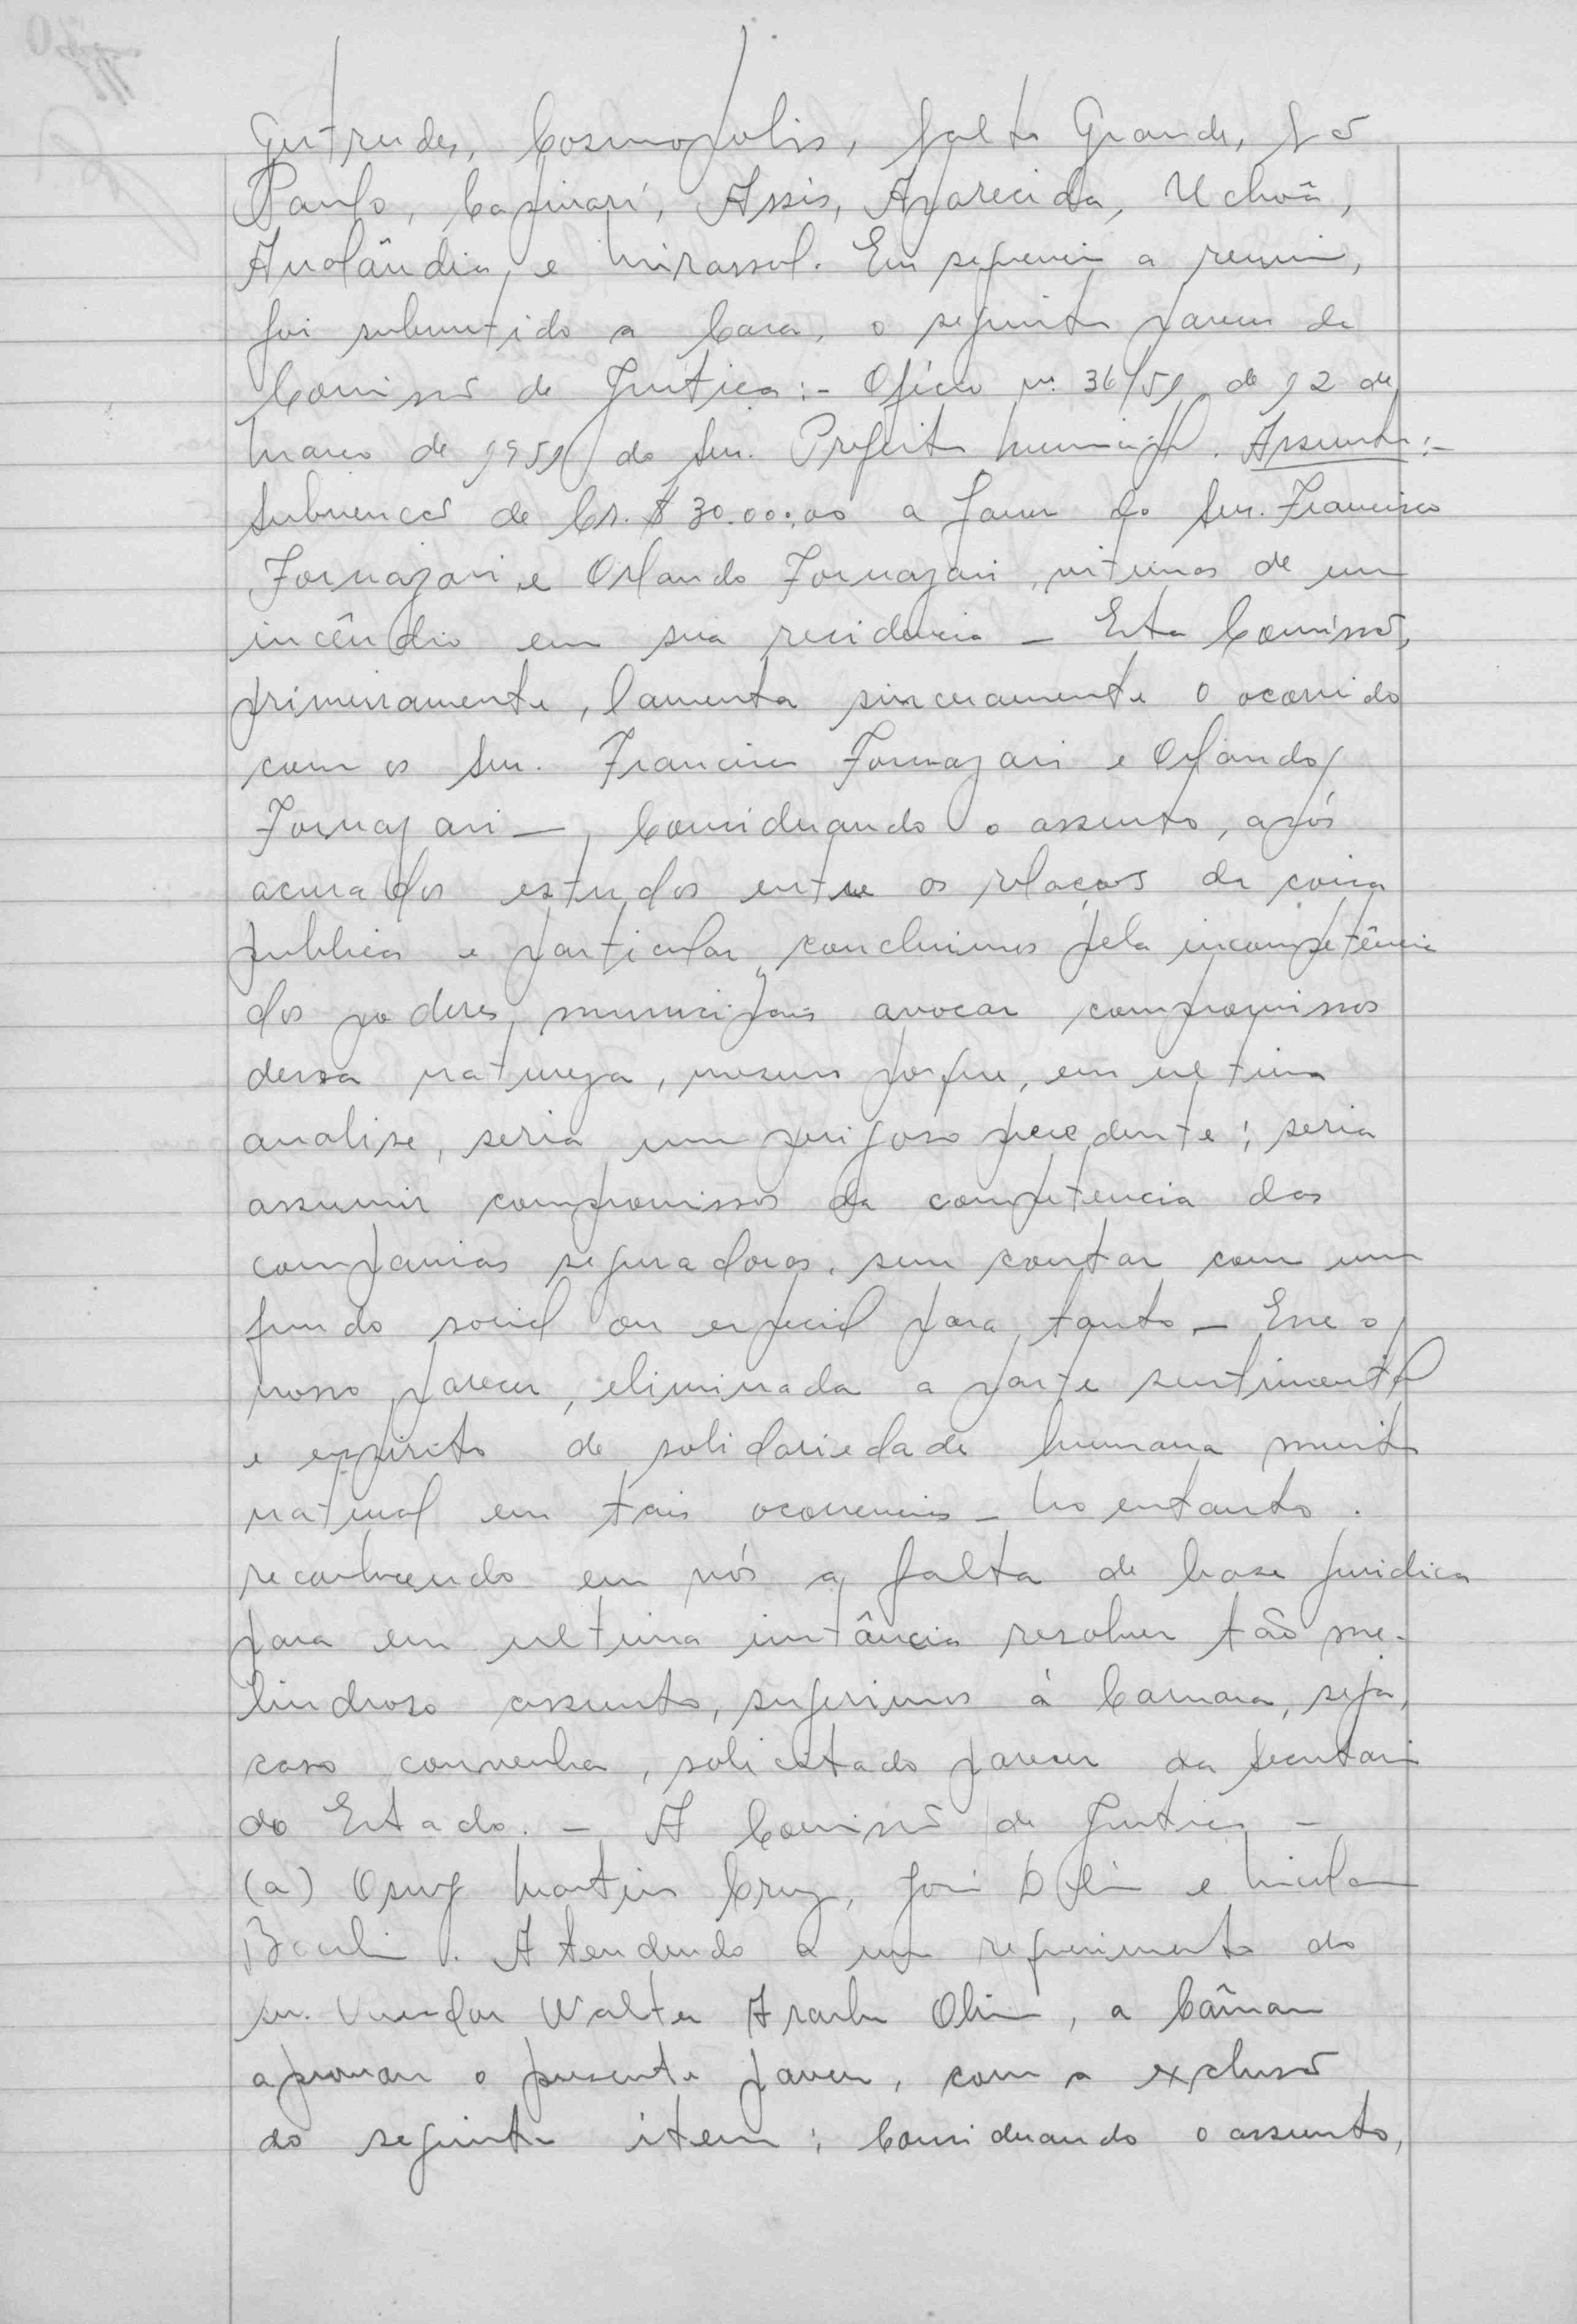 Gertrudes, Cosmopolis, Salto Grande, São
Paulo, Capivari, Assis, Aparecida, Uchoã,
Analândia, e Mirassol. Em seguencia a reunião,
foi submetido a Casa, o seguinte parecer da
Comissão de Justiça:- Oficio nº 36/59 de 12 de
Março de 1959 do Snr. Prefeito Municipal. Assunto:-
Subvenção de Cr.$ 30.00:,00 a favor do Snr. Francisco
Fornazari, e Orlando Fornazari, vitimas de um
incêndio em sua residencia - Esta Comissão,
primeiramente, lamenta sinceramente o ocorrido
com os Snr. Francisco Fornazari e Orlando
Fornazari -, Considerando o assunto, após
acurados estudos entre as relações da coisa
publica e particular, concluimos pela incompetência
dos poderes municipais avocar compromissos
dessa natureza, mesmo porque, em ultima
analise, seria um perigoso precedente; seria
assumir compromissos da competencia das
companias seguradoras, sem contar com um
fundo social ou especial para tanto - Esse o
nosso parecer, eliminada a parte sentimental
e espirito de solidariedade humana muito
natural em tais ocorrencias - No entanto.
reconhecendo em nós a falta de base juridica
para em ultima instância resolver tão me-
lindroso assunto, sugerimos á Camara, seja,
caso convenha, solicitado parecer da Secretaria
do Estado. - A Comissão de Justiça -
(a) Osny Martins Cruz, José
. Atendendo a um requerimento do
sr. Vereador Walter , a Câmara
aprovou o presente parecer, com a exclusão
do seguinte item: Considerando o assunto,